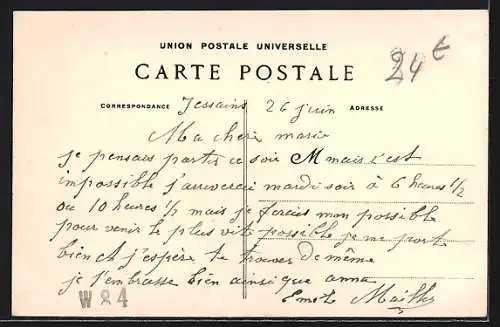 UNION POSTALE UNIVERSELLE
CARTE POSTALE
24 t
CORRESPONDANCE Jessains 26 juin ADRESSE
Ma cheri marie
je pensais partir ce soir M mais c'est
impossible j'arriverai mardi soir à 6 heures 1/2
ou 10 heures 1/2 mais je ferais mon possible
pour venir le plus vite possible je me porte
bien et j'espère te trouver de même
je t'embrasse bien ainsi que anna
W 84